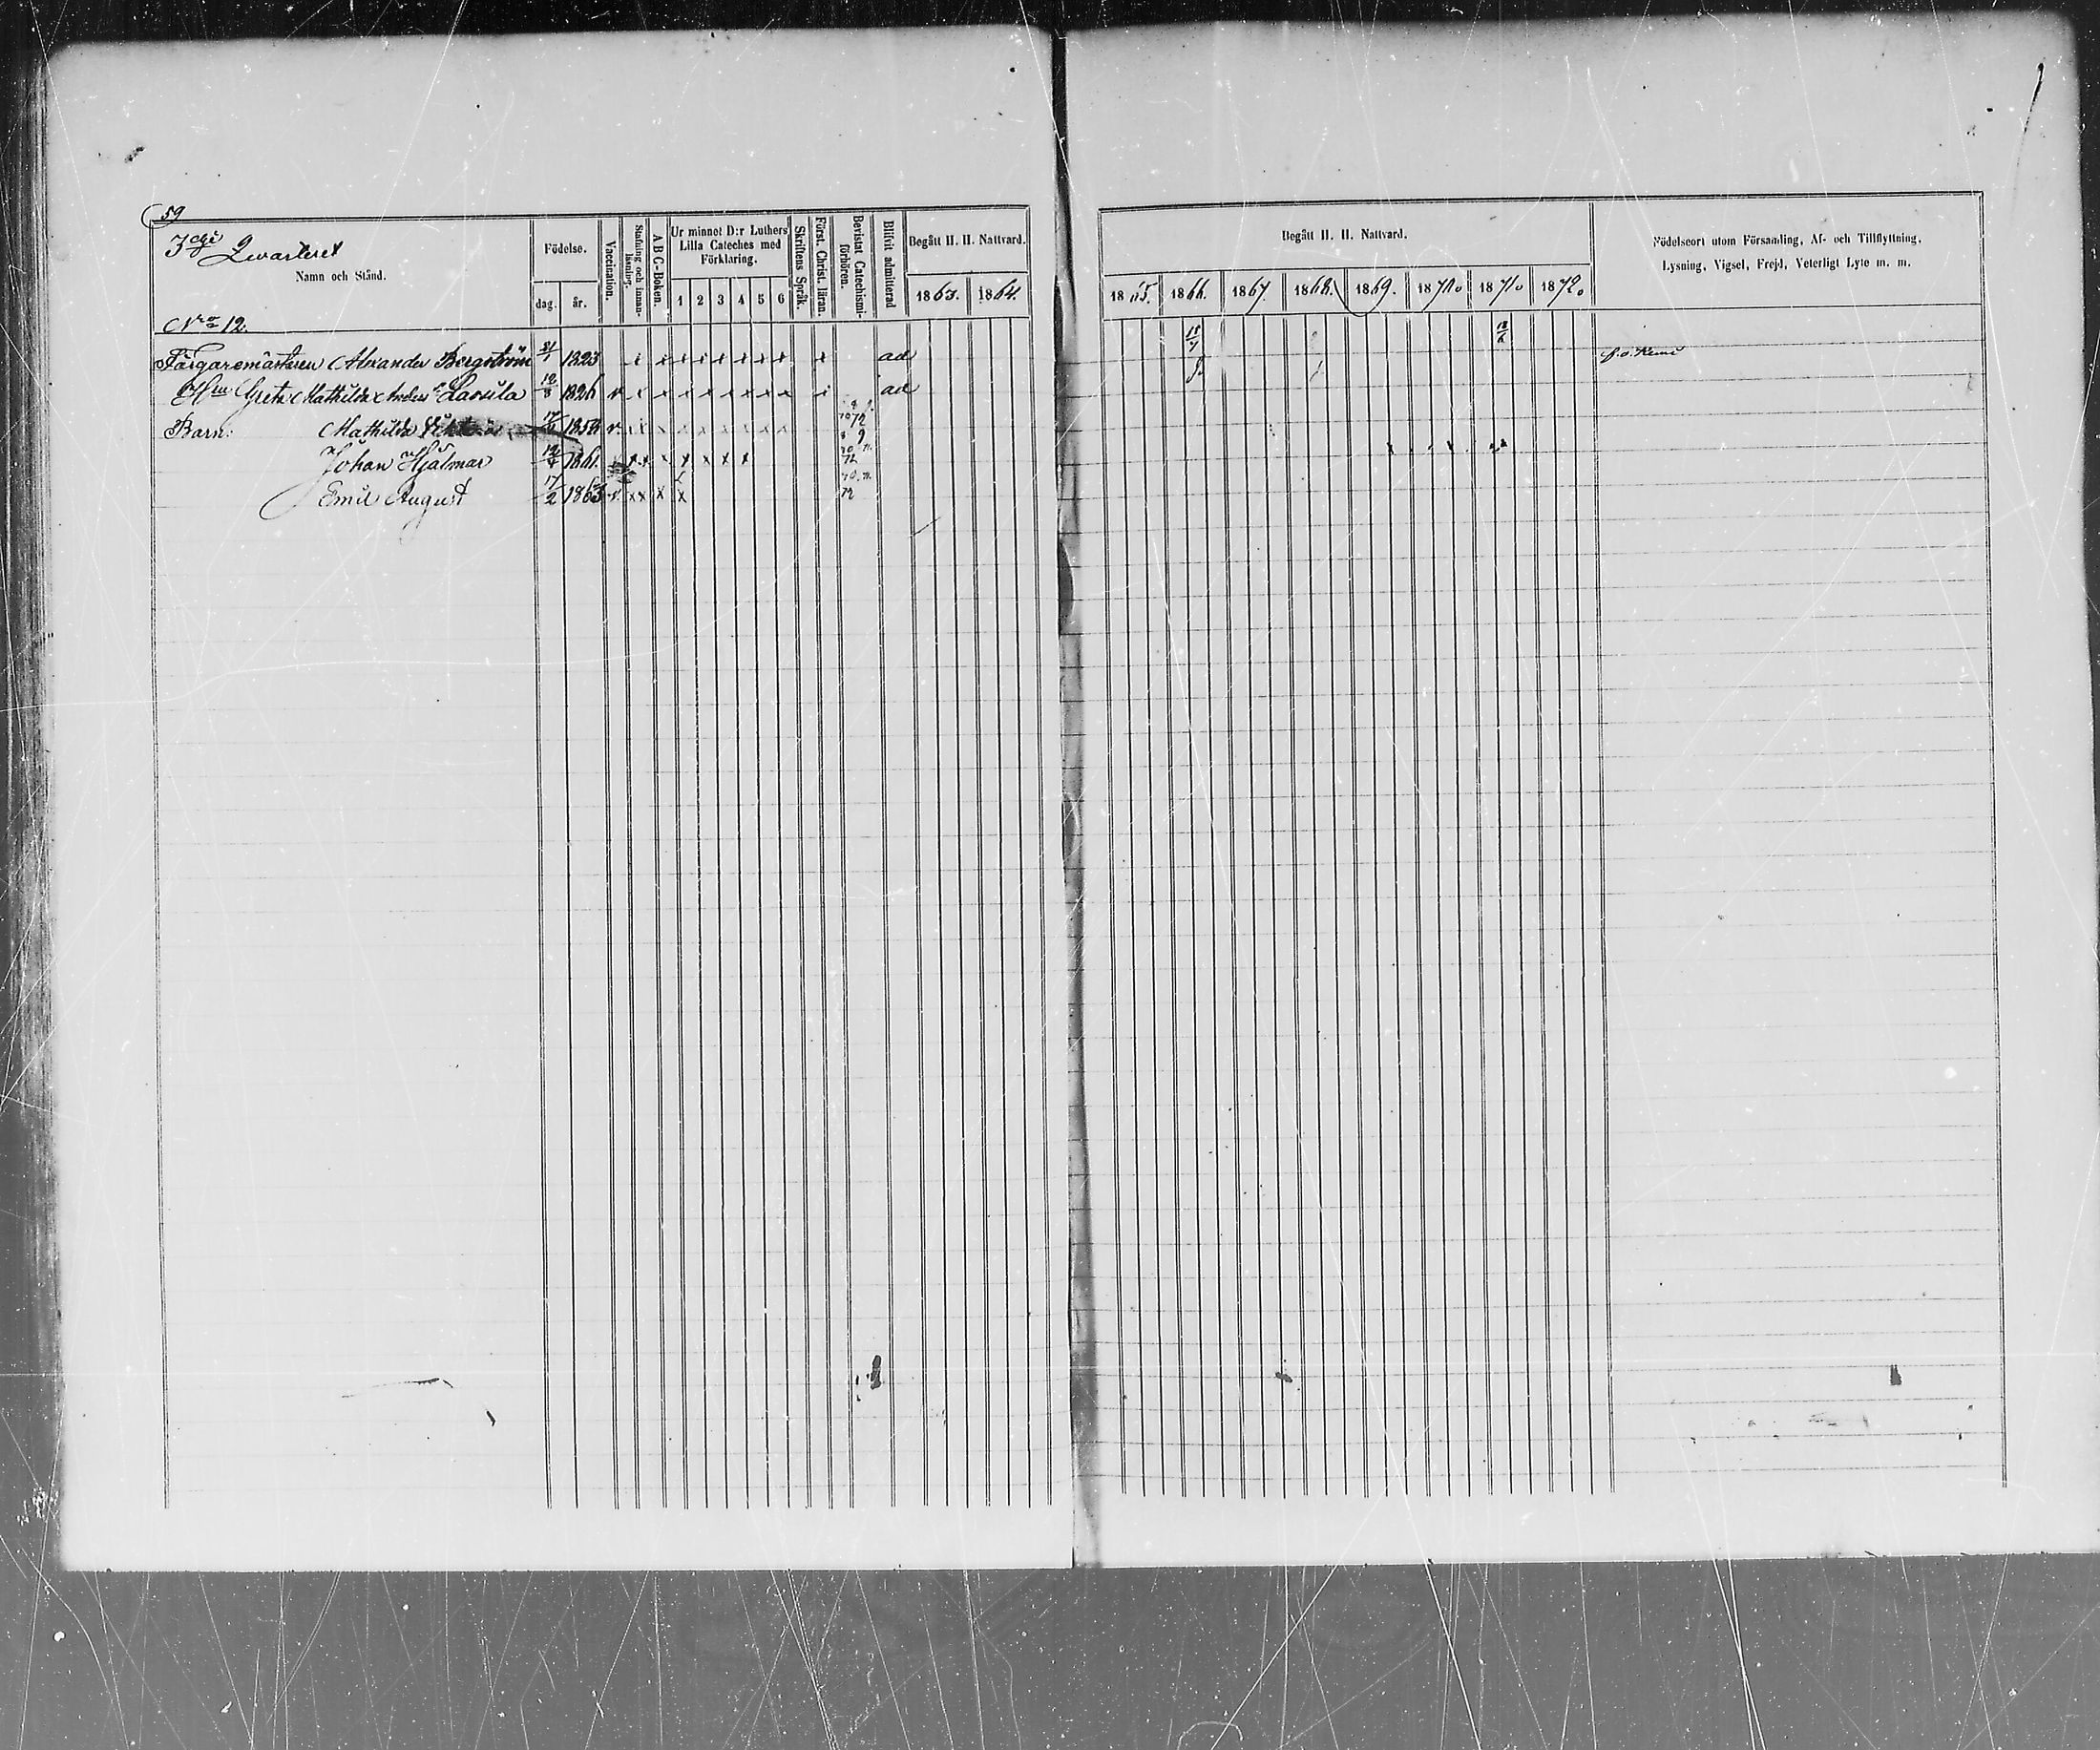 59
3dje Qwarteret
Namn och Stånd.
Födelse.
dag.
år.
Vaccination.
Stafning och innanläsning.
A B C-Boken.
Ur minnet D:r Luthers Lilla Cateches med Förklaring.
1 2 3 4 5 6
Skriftens Språk.
Först. Christ. läran.
Bevistat Catechismi-förhören.
Blifvit admitterad
Begått H. H. Nattvard.
1863. 1864.
Begått H. H. Nattvard.
1865. 1866. 1867. 1868. 1869. 1870. 1871. 1872.
Födelseort utom Församling, Af- och Tillflyttning,
Lysning, Vigsel, Frejd, Veterligt Lyte m. m.
Nro 12.
Färgaremästaren Alexander Bergström 31/1 1823 x x x x x x x x x ad
Hu Greta Mathilda Anders dr Lassila 1826 v x x x x x x x x x ad
Barn: Mathilda 1858 v. x x x x x x x x 72
Johan Hjalmar 1861. x x x x x x x 72
Emil August 17/2 1863 v. x x x x 72